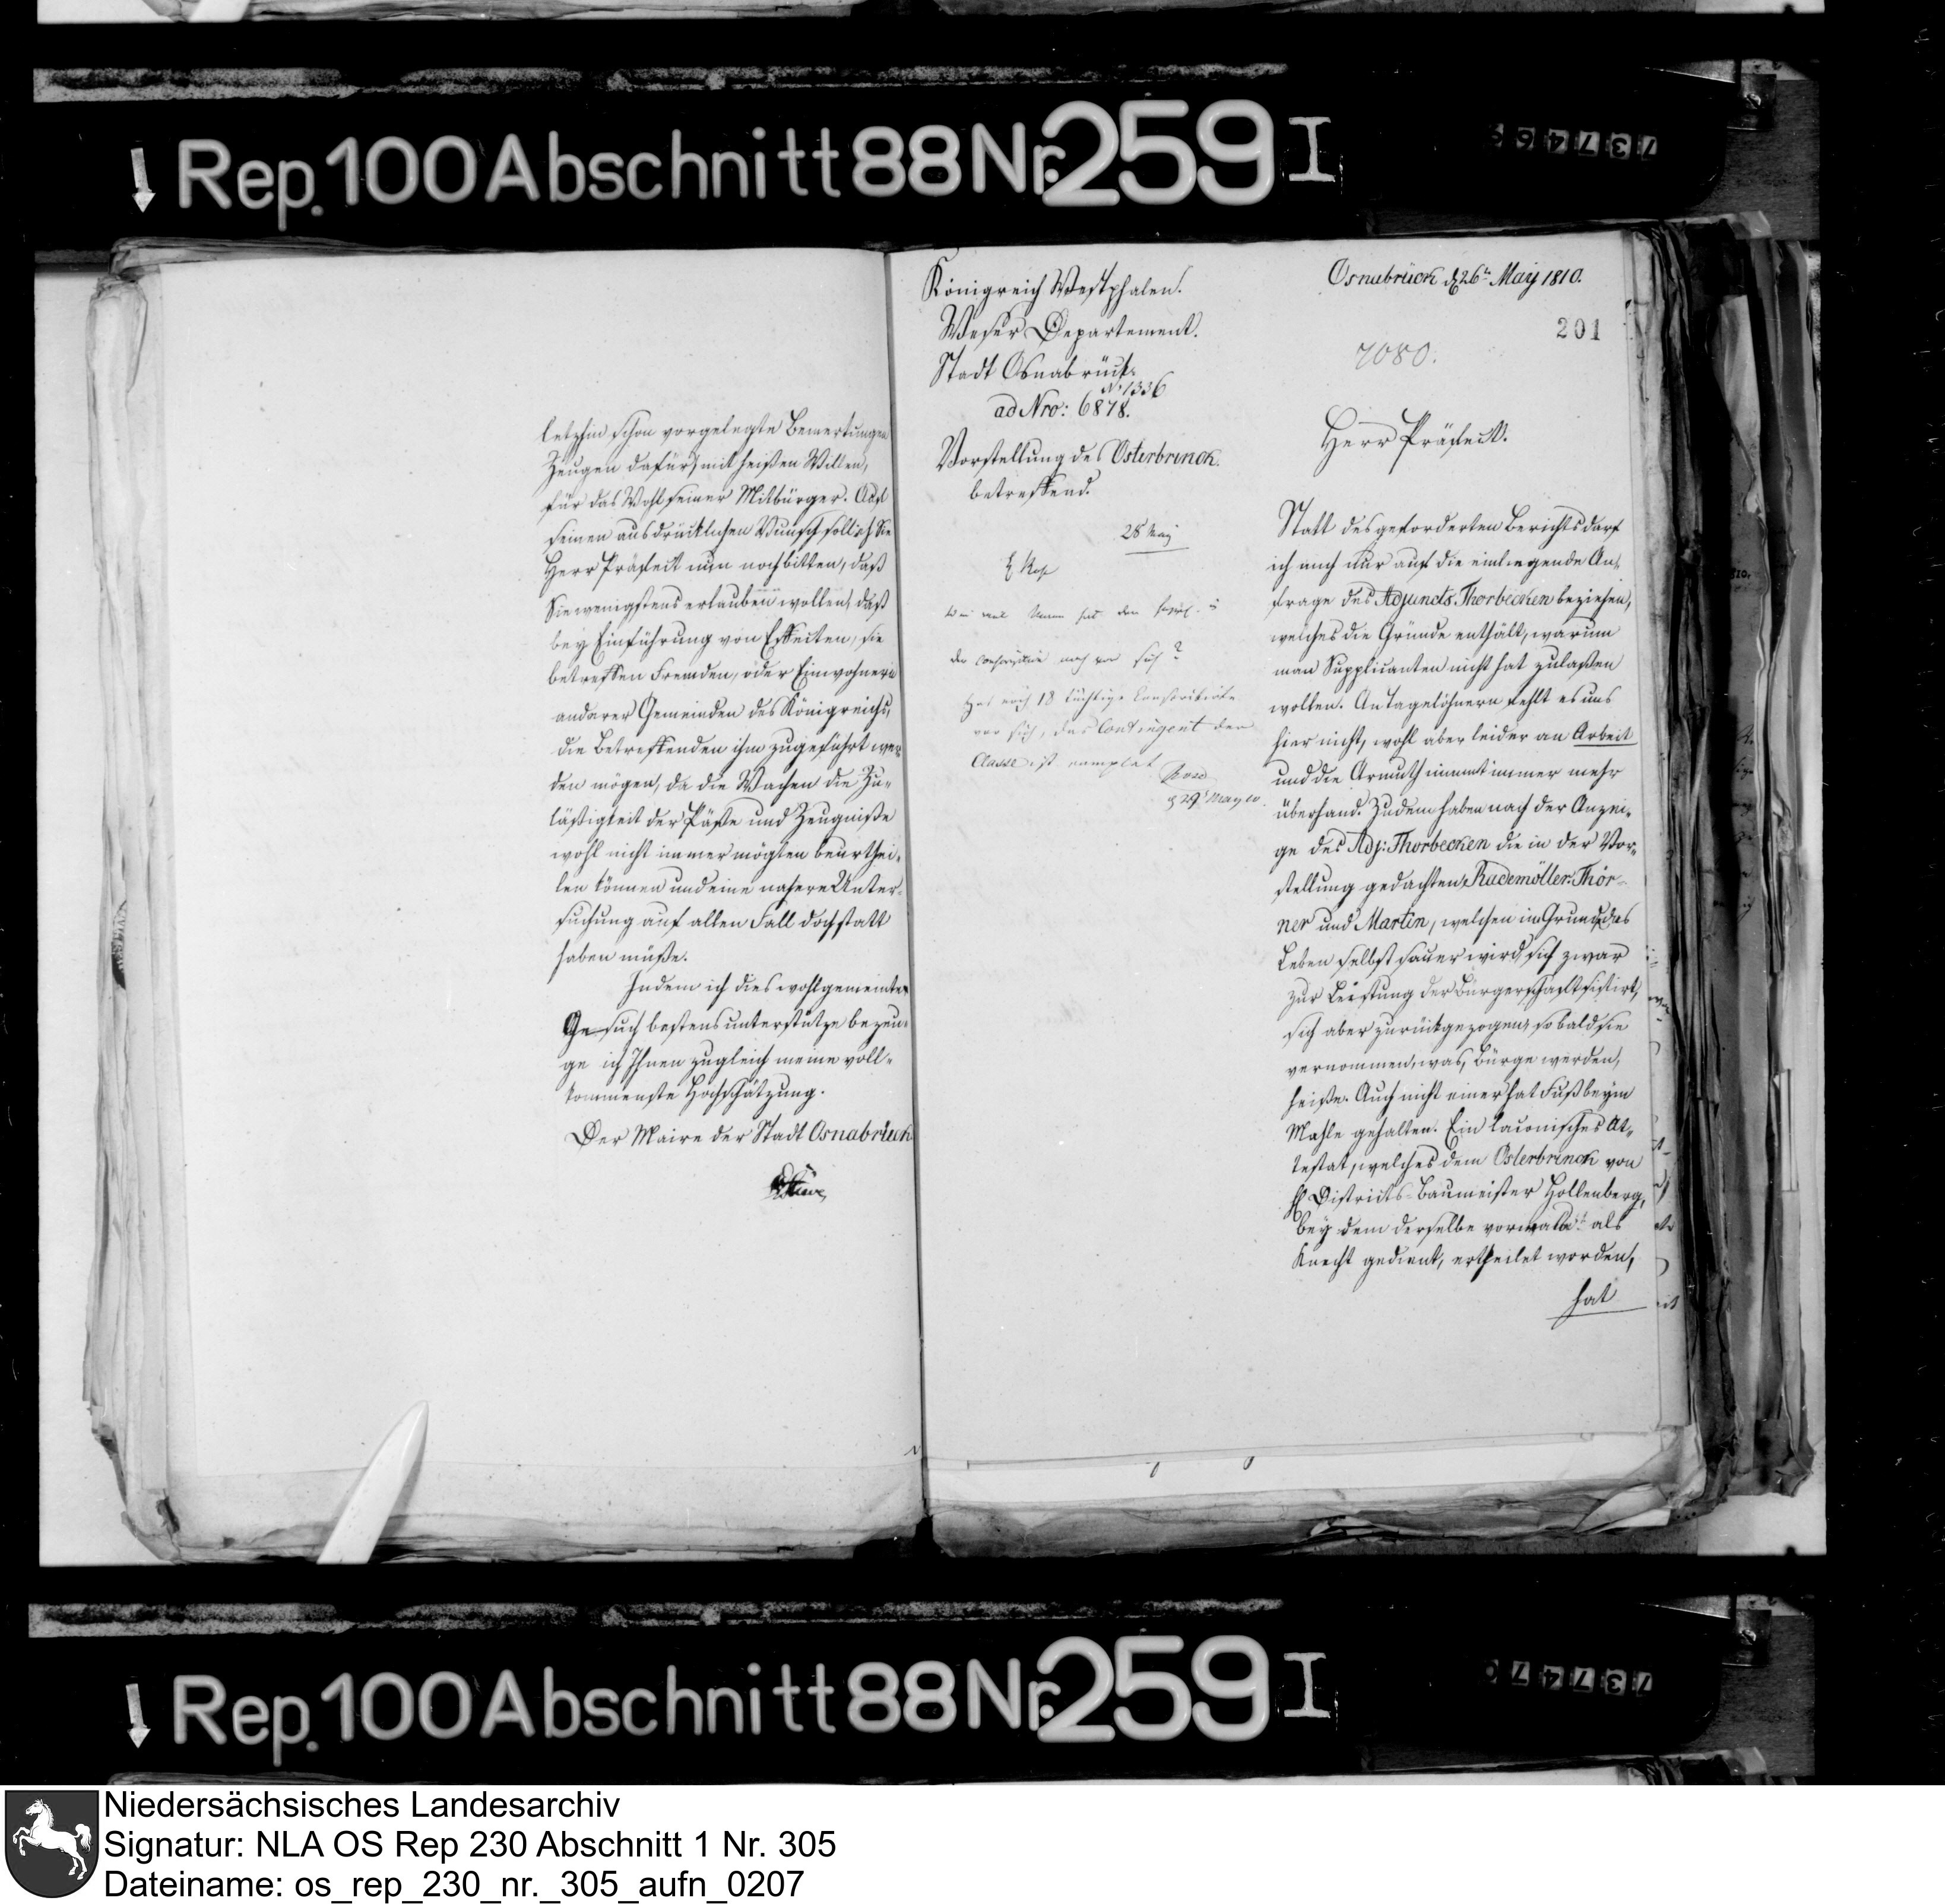 Rep. 100 Abschnitt 88 Nr. 259 I
letzhin schon vorgelegte Bemerkungen
Zeugen dafür, mit heißen Willen,
für das Wohl seiner Mitbürger. Auf
seinen ausdrücklichen Wunsch soll ich Sie
Herr Präfect nun noch bitten, daß
Sie wenigstens erlauben wollen, daß
bey Einführung von Effecten, sie
betreffen Fremden, oder Einwohnern
anderer Gemeinden des Königreichs,
die Betreffenden ihm zugeführt wer
den mögen, da die Wachen die Zu-
läßigkeit der Päße und Zeugniße
wohl nicht immer mögten beurthei-
len können und eine nähere Unter-
suchung auf allen Fall doch statt
haben müße.
Indem ich dies wohlgemeinte
Gesuch bestens unterstütze bezeu-
ge ich Ihnen zugleich meine voll-
kommenste Hochschätzung.
Der Maire der Stadt Osnabrück
Stüve
Königreich Westphalen.
Weser Departement.
Stadt Osnabrück.
N. 1336
ad Nro: 6878.
Vorstellung des Osterbrinck.
betreffend.
28 May
der Conscription noch vor sich?
Hat noch 18 tüchtige Conscribirte
vor sich, das Contingent der
Classe ist complet
Rose
d 29t May 10.
Osnabrück d 26t. May 1810.
201
7080.
Herr Präfect.
Statt des geforderten Berichts darf
ich mich nur auf die einliegende An-
frage des Adjuncts Thorbecken beziehen,
welches die Gründe enthält, warum
man Supplicanten nicht hat zulaßen
wollen. An Tagelöhnern fehlt es uns
hier nicht, wohl aber leider an Arbeit
und die Armuth nimmt immer mehr
überhand. Zudem haben nach der Anzei-
ge des Adj: Thorbecken die in der Vor-
stellung gedachten Rudemöller. Thör-
ner und Martin, welchen im Grunde das
Leben selbst sauer wird sich zwar
zur Leistung der Bürgerschaft sistirt,
sich aber zurückgezogen, sobald sie
vernommen, was, Bürge werden,
heiße. Auch nicht einer hat Fuß beym
Mahle gehalten. Ein laconisches At-
testat, welches dem Osterbrinck von
H Districts-Baumeister Hollenberg,
bey dem derselbe vormals als
Knecht gedient, ertheilet worden,
hat
Rep. 100 Abschnitt 88 Nr. 259 I
Niedersächsisches Landesarchiv
Signatur: NLA OS Rep 230 Abschnitt 1 Nr. 305
Dateiname: os_rep_230_nr._305_aufn_0207